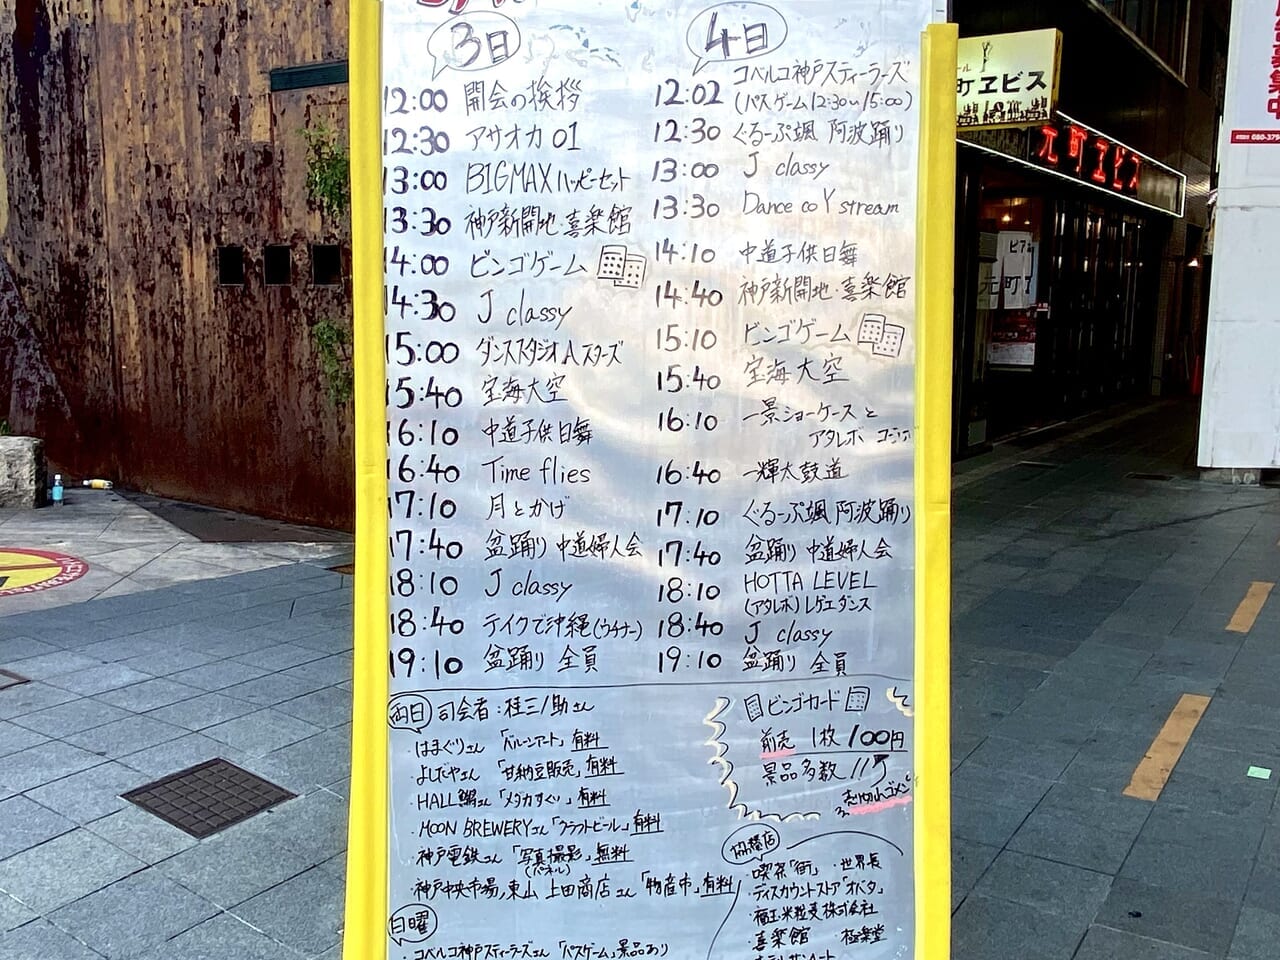 3日
12:00 開会の挨拶
12:30 アサオカ01
13:00 BIGMAXハッピーセット
13:30 神戸新開地・喜楽館
14:00 ビンゴゲーム
14:30 J classy
15:00 ダンススタジオAスターズ
15:40 宝海大空
16:10 中道子供日舞
16:40 Time flies
17:10 月とかげ
17:40 盆踊り 中道婦人会
18:10 J classy
18:40 テイクで沖縄(ウチナー)
19:10 盆踊り 全員
4日
12:02 コベルコ神戸スティーラーズ
(パスゲーム12:30〜15:00)
12:30 ぐるーぷ颯 阿波踊り
13:00 J classy
13:30 Dance co Y stream
14:10 中道子供日舞
14:40 神戸新開地・喜楽館
15:10 ビンゴゲーム
15:40 宝海大空
16:10 一景ショーケースと
アタレボ
16:40 一輝太鼓道
17:10 ぐるーぷ颯 阿波踊り
17:40 盆踊り 中道婦人会
18:10 HOTTA LEVEL
(アタレボ)レゲエダンス
18:40 J classy
19:10 盆踊り 全員
両日 司会者:桂三ノ助さん
・はまぐりさん「バルーンアート」有料
・よしだやさん「甘納豆販売」有料
・HALL鯛さん「メダカすくい」有料
・MOON BREWERYさん「クラフトビール」有料
・神戸電鉄さん「写真撮影」無料
(パネル)
・神戸中央市場,東山 上田商店さん「物産市」有料
日曜
・コベルコ神戸スティーラーズさん「パスゲーム」景品あり
ビンゴカード
前売 1枚100円
景品多数!!
売り切れゴメン
協賛店
・喫茶「街」・世界長
・ディスカウントストア「オバタ」
・福玉米粒麦株式会社
・喜楽館 ・極楽堂
町ヱビス
元町ヱビス
元町
募集中